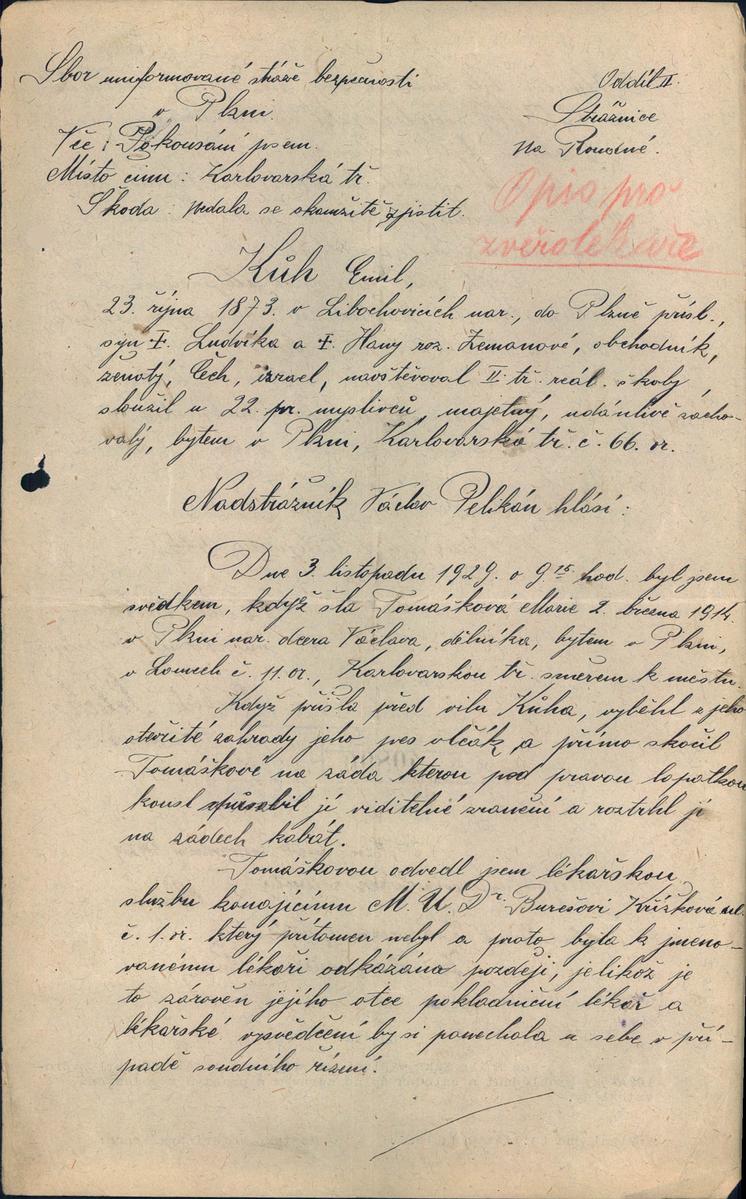 Sbor uniformované stráže bezpečnosti
v Plzni.
Oddíl II.
Strážnice
na Roudné.
Věc: Pokousání psem.
Místo činu: Karlovarská tř.
Škoda: nedala se okamžitě zjistit.
Opis pro
zvěrolékaře
Kůh Emil,
23. října 1873. v Libochovicích nar., do Plzně přísl.,
syn †. Ludvíka a †. Hany roz. Zemanové, obchodník,
ženatý, Čech, israel, navštěvoval II tř. reál. školy,
sloužil u 22. pr. myslivců, majetný, údánlivě zácho-
valý, bytem v Plzni, Karlovarská tř. č. 66. or.
Nadstrážník Václav Pelikán hlásí:
Dne 3. listopadu 1929. o 9 15 hod. byl jsem
svědkem, když šla Tomášková Marie 2. března 1914.
v Plzni nar. dcera Václava, dělníka, bytem v Plzni,
v Lomech č. 11. or., Karlovarskou tř. směrem k městu.
Když přišla před vilu Kůha, vyběhl z jeho
otevřité zahrady jeho pes vlčák, a přímo skočil
Tomáškové na záda kterou pod pravou lopatkou
kousl způsobil jí viditelné zranění a roztrhl jí
na zádech kabát.
Tomáškovou odvedl jsem lékařskou
službu konajícímu M. U. Dr. Burešovi Křížková ul.
č. 1. or. který přítomen nebyl a proto byla k jmeno-
vanému lékaři odkázána později, jelikož je
to zároveň jejího otce pokladniční lékař a
lékařské vysvědčení by si ponechala u sebe v pří-
padě soudního řízení.